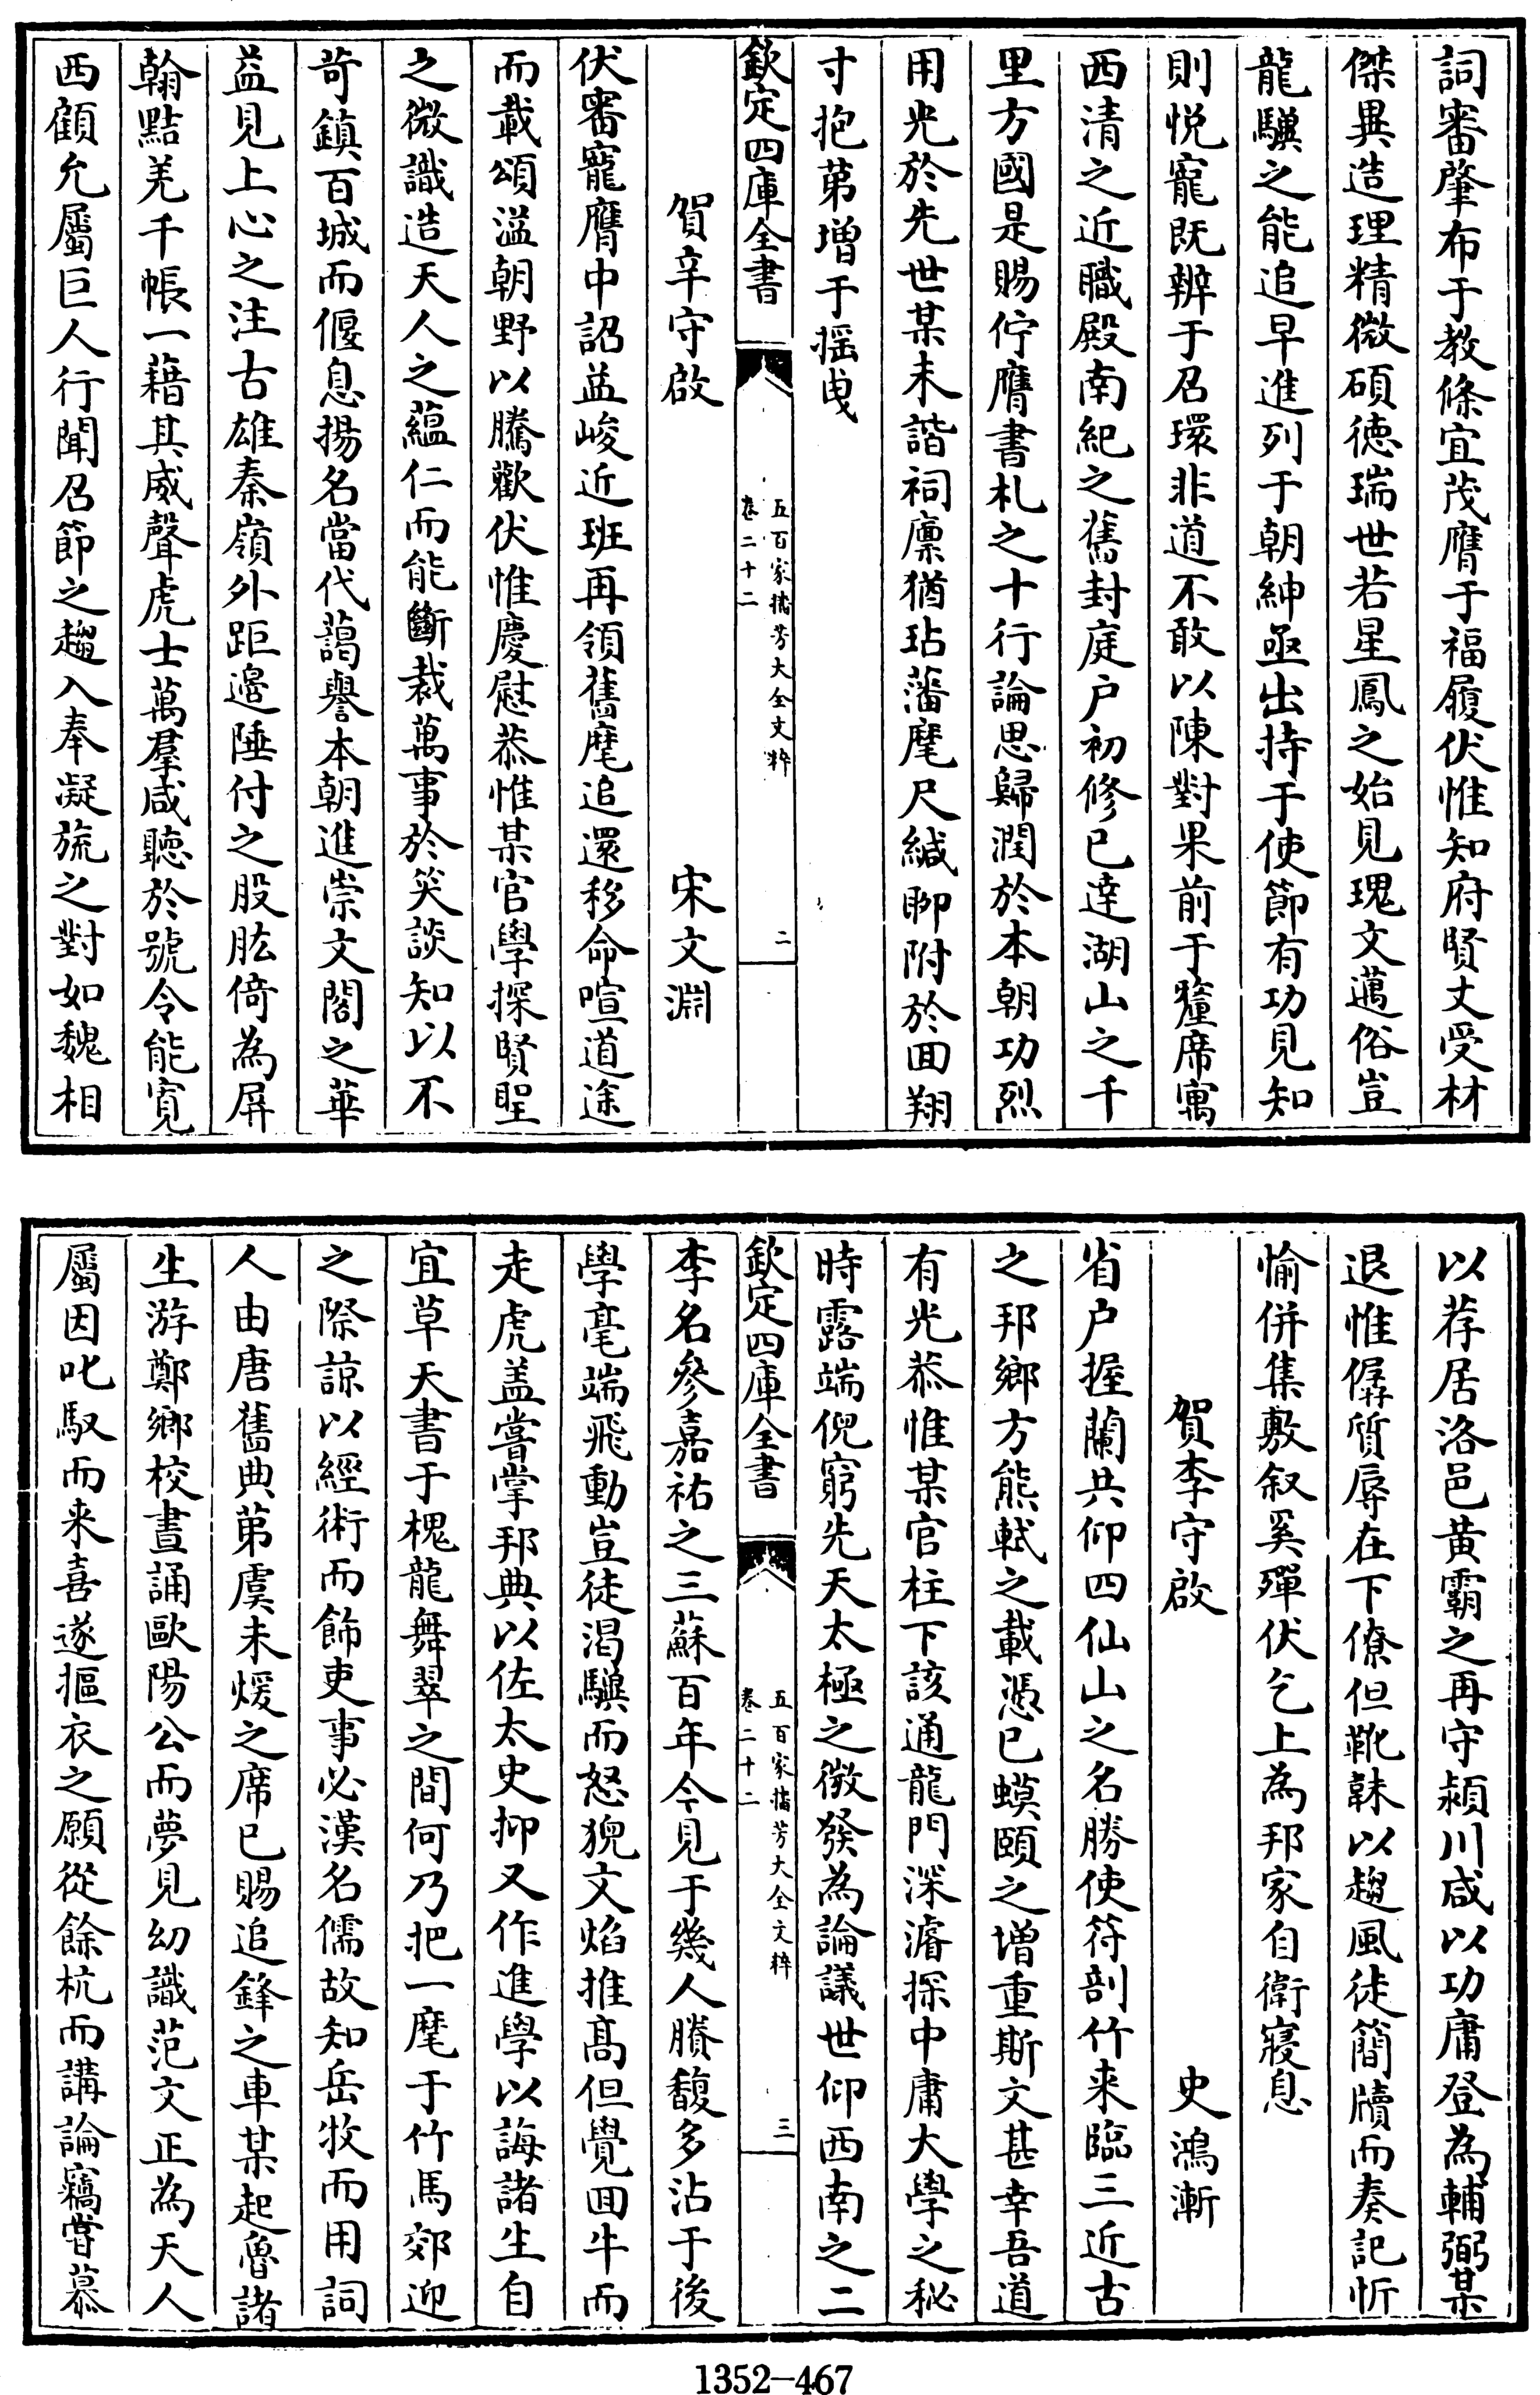 詞審肇布于教條宜茂膺于福履伏惟知府賢丈受材
傑異造理精微碩徳瑞世若星鳳之始見瑰文邁俗豈
龍驥之能追早進列于朝紳亟出持于使節有功見知
則悦寵既辨于召環非道不敢以陳對果前于釐席寓
西清之近職殿南紀之舊封庭户初修已逹湖山之千
里方國是賜佇膺書札之十行論思歸潤於本朝功烈
用光於先世某未諧祠廪猶玷藩麾尺緘聊附於回翔
寸抱苐增于揺曵
欽定四庫全書
五百家播芳大全文粹
卷二十二
二
賀辛守啟
宋文淵
伏審寵膺中詔益峻近班再領舊麾追還移命喧道途
而載頌溢朝野以騰歡伏惟慶慰恭惟某官學探賢聖
之微識造天人之藴仁而能斷裁萬事於笑談知以不
苛鎮百城而偃息揚名當代藹譽本朝進崇文閣之華
益見上心之注古雄秦嶺外距邊陲付之股肱倚為屏
翰㸃羌千帳一藉其威聲虎士萬羣咸聽於號令能寛
西顧允屬巨人行聞召節之趨入奉凝旒之對如魏相
以荐居洛邑黄霸之再守潁川咸以功庸登為輔弼某
退惟孱質辱在下僚但靴韎以趨風徒簡牘而奏記忻
愉併集敷叙奚殫伏乞上為邦家自衛寝息
賀李守啟
史鴻漸
省户握蘭共仰四仙山之名勝使符剖竹来臨三近古
之邦鄉方熊軾之載馮已蟆頤之增重斯文甚幸吾道
有光恭惟某官柱下該通龍門深濬探中庸大學之秘
時露端倪窮先天太極之微發為論議世仰西南之二
欽定四庫全書
五百家播芳大全文粹
卷二十二
三
李名參嘉祐之三蘇百年今見于幾人賸馥多沾于後
學毫端飛動豈徒渇驥而怒猊文焰推髙但覺回牛而
走虎盖嘗掌邦典以佐太史抑又作進學以誨諸生自
宜草天書于槐龍舞翠之間何乃把一麾于竹馬郊迎
之際諒以經術而飾吏事必漢名儒故知岳牧而用詞
人由唐舊典苐虞未煖之席已賜追鋒之車某起魯諸
生游鄭鄉校晝誦歐陽公而夢見幼識范文正為天人
屬因叱馭而来喜遂摳衣之願從餘杭而講論竊嘗慕
1352-467